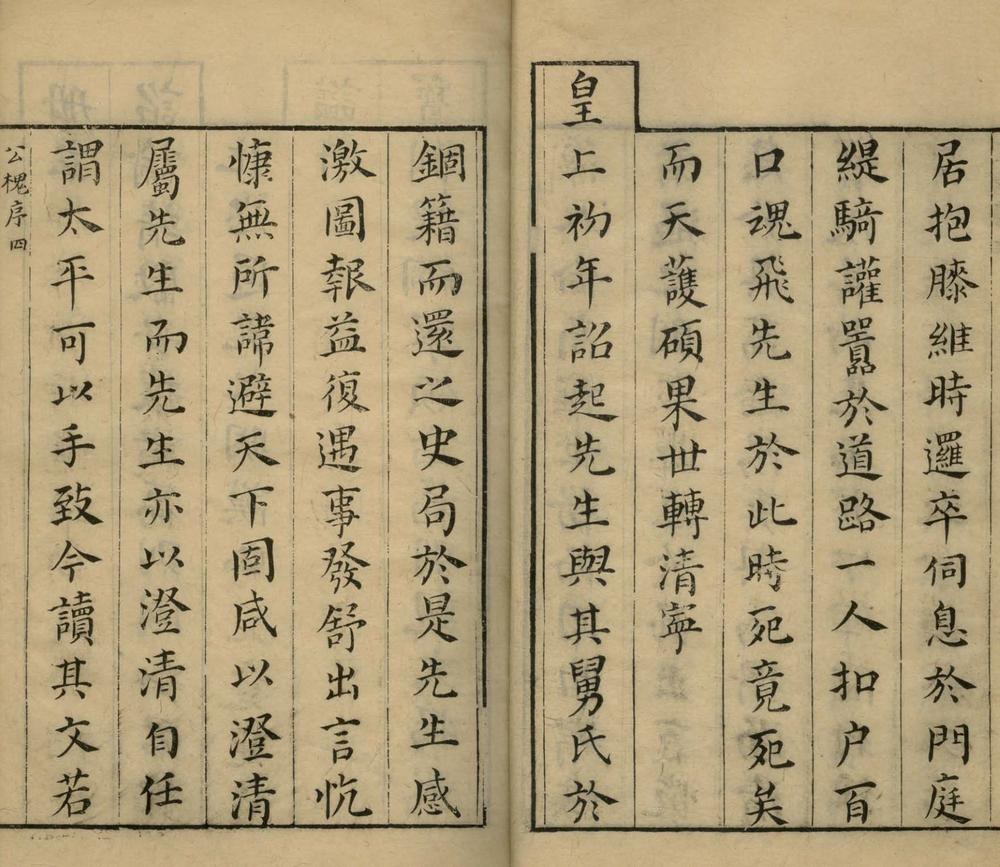 居抱膝維時邏卒伺息於門庭
緹騎讙嚣於道路一人扣户百
口魂飛先生於此時死竟死矣
而天護碩果世轉清寧
皇上初年詔起先生與其舅氏於
錮籍而還之史局於是先生感
激圖報益復遇事發舒出言忼
慷無所諱避天下固咸以澄清
屬先生而先生亦以澄清自任
謂太平可以手致今讀其文若
公槐序四